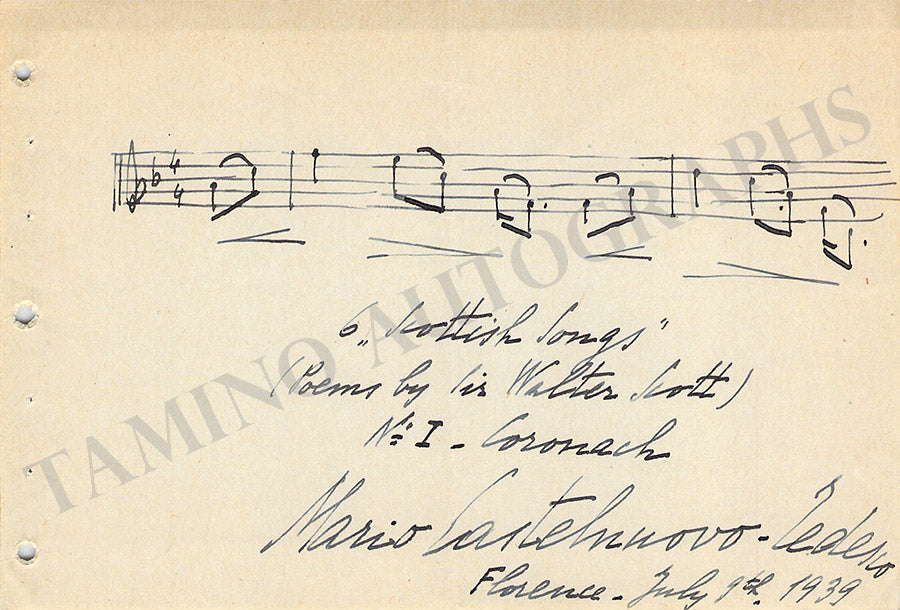 4
4
6 „Scottish Songs"
(Poems by Sir Walter Scott)
No: I - Coronach
Mario Castelnuovo-Tedesco
Florence - July 9th. 1939
TAMINO AUTOGRAPHS